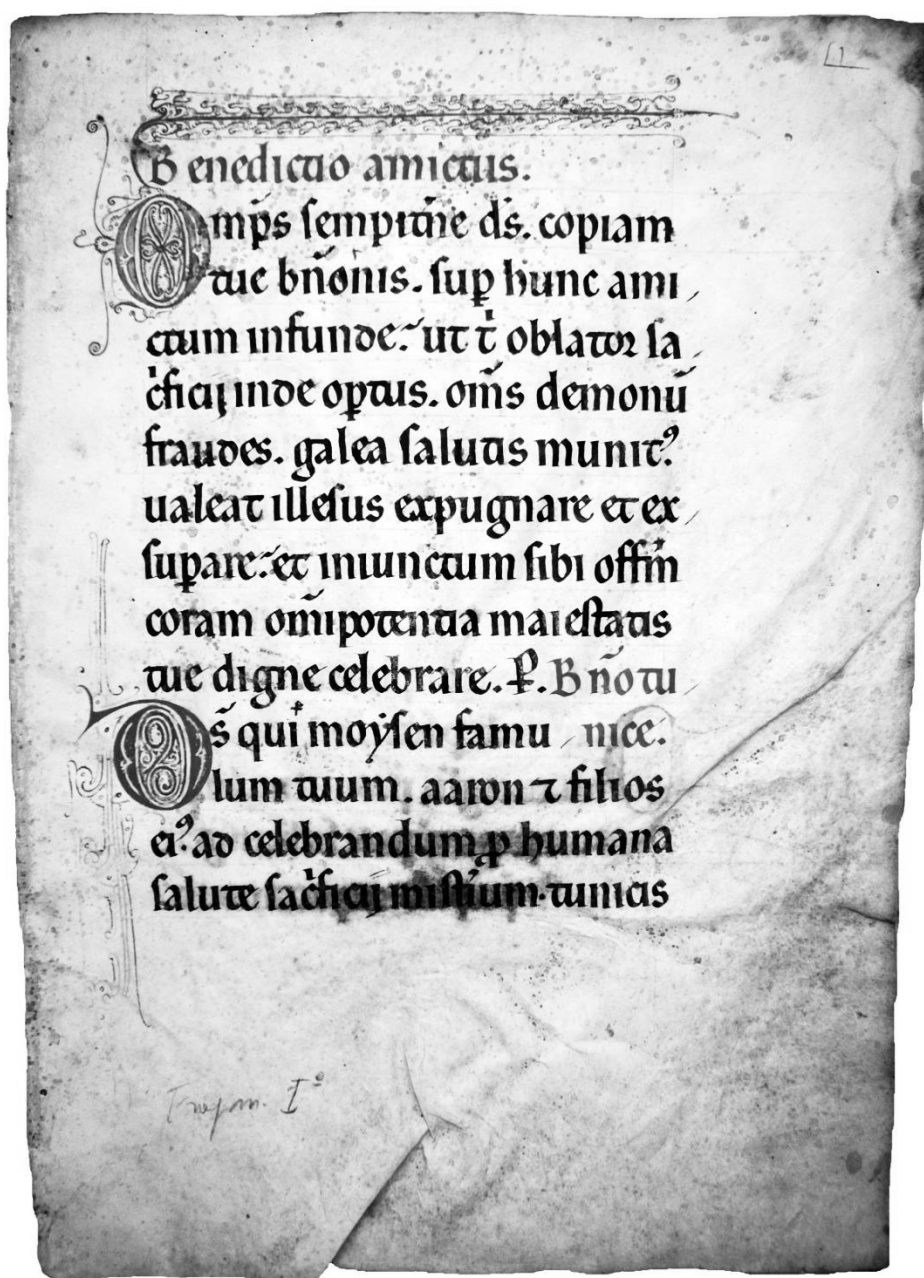 Benedictio amictus.
Omp̄s sempit̄ne d̄s. copiam
tue bn̄onis. sup̱ hunc ami
ctum infunde. ut t͛ oblator sa
c͛ficij inde op̱tus. om̄s demonū
fraudes. galea salutis munitꝰ
ualeat illesus expugnare et ex
sup̱are. et iniunctum sibi offm̄
coram om̄ipotentia maiestatis
tue digne celebrare. P̱. Bn̄o tu
nice.
Ds̄ qui moẏsen famu
lum tuum. aaron ⁊ filios
eiꝰ ad celebrandum ꝓ humana
salute sac͛ficij mist͛ium. tunicis